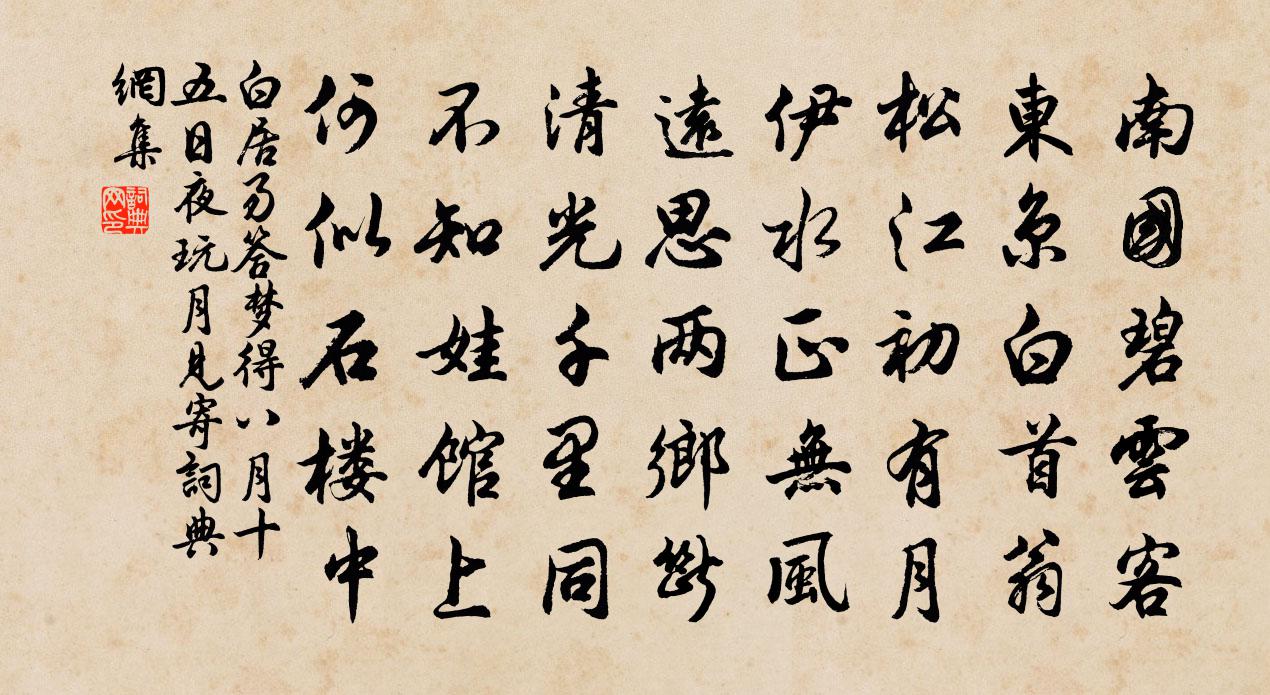 南國碧雲客
東京白首翁
松江初有月
伊水正無風
遠思两鄉斷
清光千里同
不知娃館上
何似石楼中
白居易答梦得八月十
五日夜玩月見寄詞典
網集
詞典網印